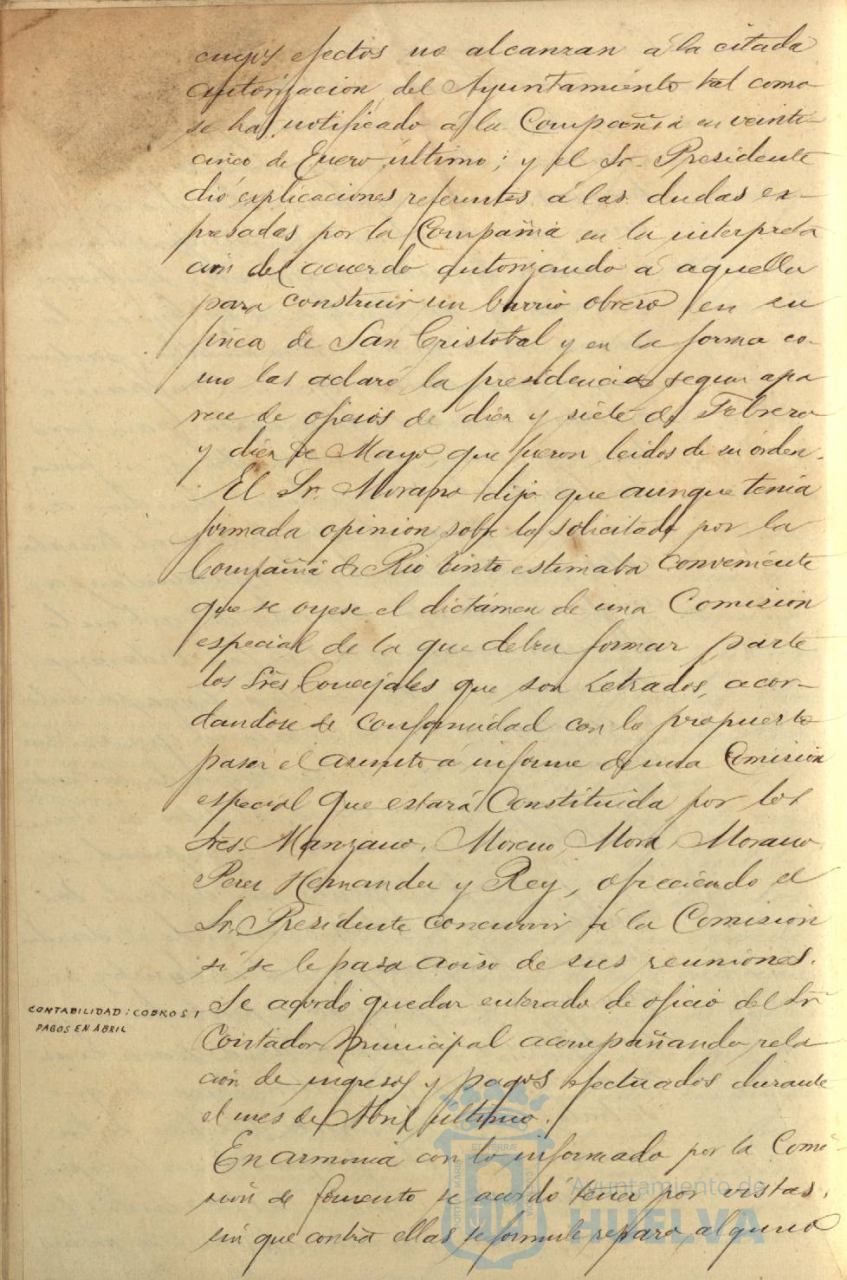 cuyos efectos no alcanzan á la citada
autorizacion del Ayuntamiento tal como
se ha notificado a la Compañia en veinte
cinco de Enero último; y el Sr. Presidente
dió esplicaciones referentes á las dudas ex-
presadas por la Compañia en la interpreta
cion del acuerdo autorizando á aquella
para construir un barrio obrero en su
finca de San Cristobal y en la forma co-
mo las aclaró la presidencia segun apa
rece de oficios de diez y siete de Febrero
y diez de Mayo, que fueron leidos de su órden.
El Sr. Morano dijo que aunque tenia
formada opinion sobre lo solicitado por la
Compañia de Rio tinto estimaba conveniente
que se oyese el dictámen de una Comision
especial de la que deben formar parte
los Sres Concejales que son Letrados, acor-
dandose de conformidad con lo propuesto
pasar el asunto á informe de una Comision
especial que estará Constituida por los
Sres. Manzano, Moreno, Mora, Morano,
Perez Hernandez y Rey, ofreciendo el
Sr. Presidente concurrir á la Comision
si se le pasa aviso de sus reuniones.
CONTABILIDAD: COBROS Y
PAGOS EN ABRIL
Se acordó quedar enterado de oficio del Sr
Contador municipal acompañando rela
cion de ingresos y pagos efectuados durante
el mes de Abril último.
En armonia con lo informado por la Comi-
sión de fomento se acordó tener por vistas,
sin que contra ellas se formule reparo alguno
Ayuntamiento de
HUELVA